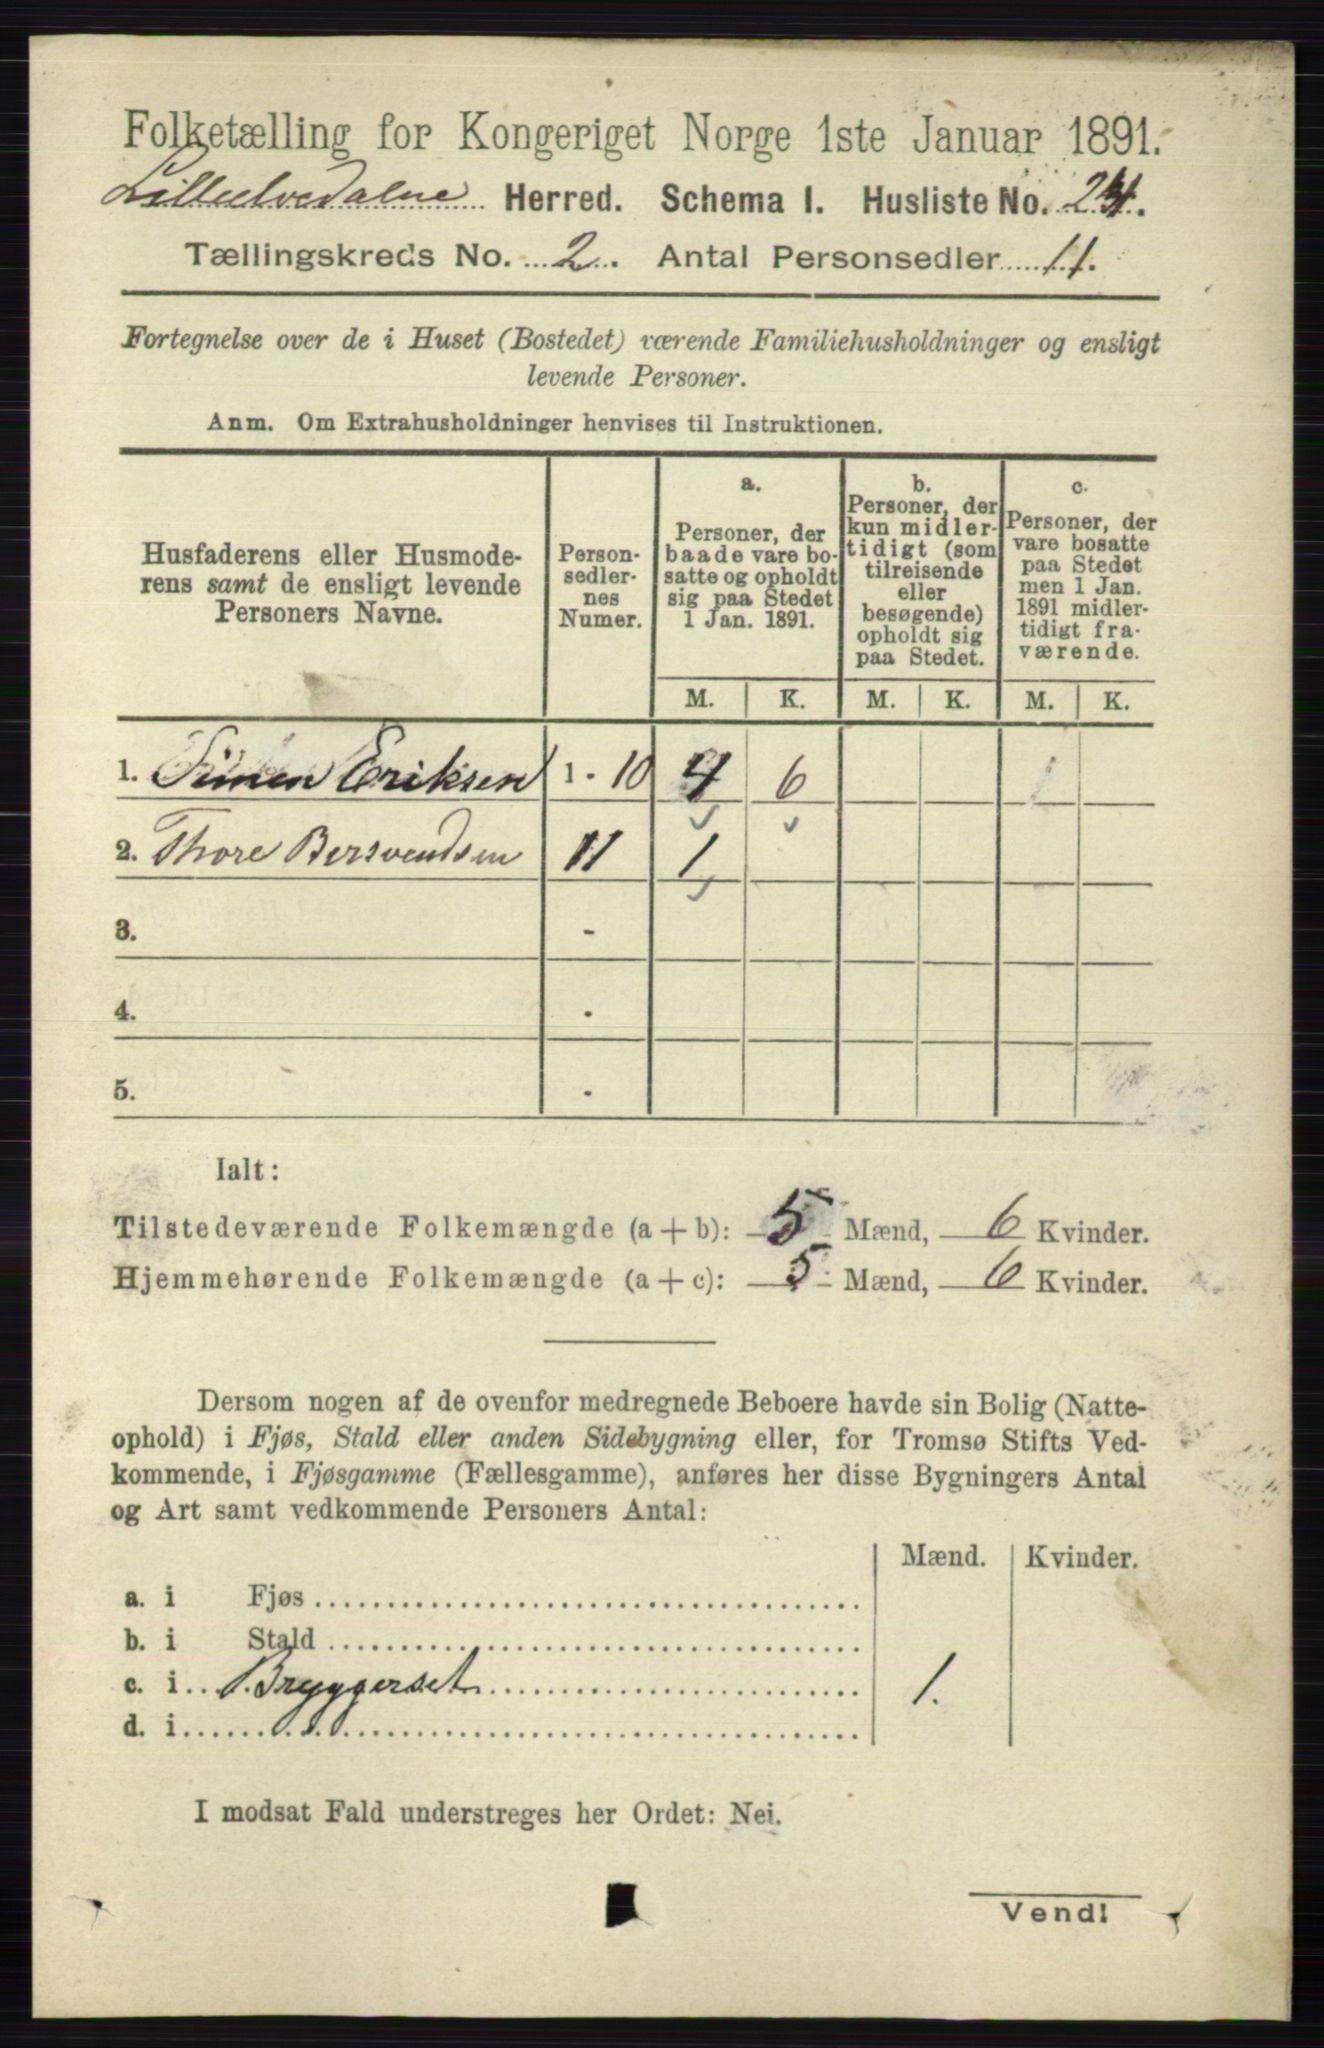 Folketælling for Kongeriget Norge 1ste Januar 1891.
Lilleelvedalne Herred. Schema I. Husliste No. 24.
Tællingskreds No. 2. Antal Personsedler 11.
Fortegnelse over de i Huset (Bostedet) værende Familiehusholdninger og ensligt
levende Personer.
Anm. Om Extrahusholdninger henvises til Instruktionen.
Husfaderens eller Husmode-
rens samt de ensligt levende
Personers Navne.
Person-
sedler-
nes
Numer.
a.
Personer, der
baade vare bo-
satte og opholdt
sig paa Stedet
1 Jan. 1891.
b.
Personer, der
kun midler-
tidigt (som
tilreisende
eller
besøgende)
opholdt sig
paa Stedet.
c.
Personer, der
vare bosatte
paa Stedet
men 1 Jan.
1891 midler-
tidigt fra-
værende.
M. K. M. K. M. K.
1. Simen Eriksen 1 - 10 4 6
2. Thore Bersvendsen 11 1
3. -
4. -
5. -
Ialt:
Tilstedeværende Folkemængde (a + b): 5 Mænd, 6 Kvinder.
Hjemmehørende Folkemængde (a + c): 5 Mænd, 6 Kvinder.
Dersom nogen af de ovenfor medregnede Beboere havde sin Bolig (Natte-
ophold) i Fjøs, Stald eller anden Sidebygning eller, for Tromsø Stifts Ved-
kommende, i Fjøsgamme (Fællesgamme), anføres her disse Bygningers Antal
og Art samt vedkommende Personers Antal:
Mænd. Kvinder.
a. i Fjøs
b. i Stald
c. i Bryggerset 1.
d. i
I modsat Fald understreges her Ordet: Nei.
Vend!